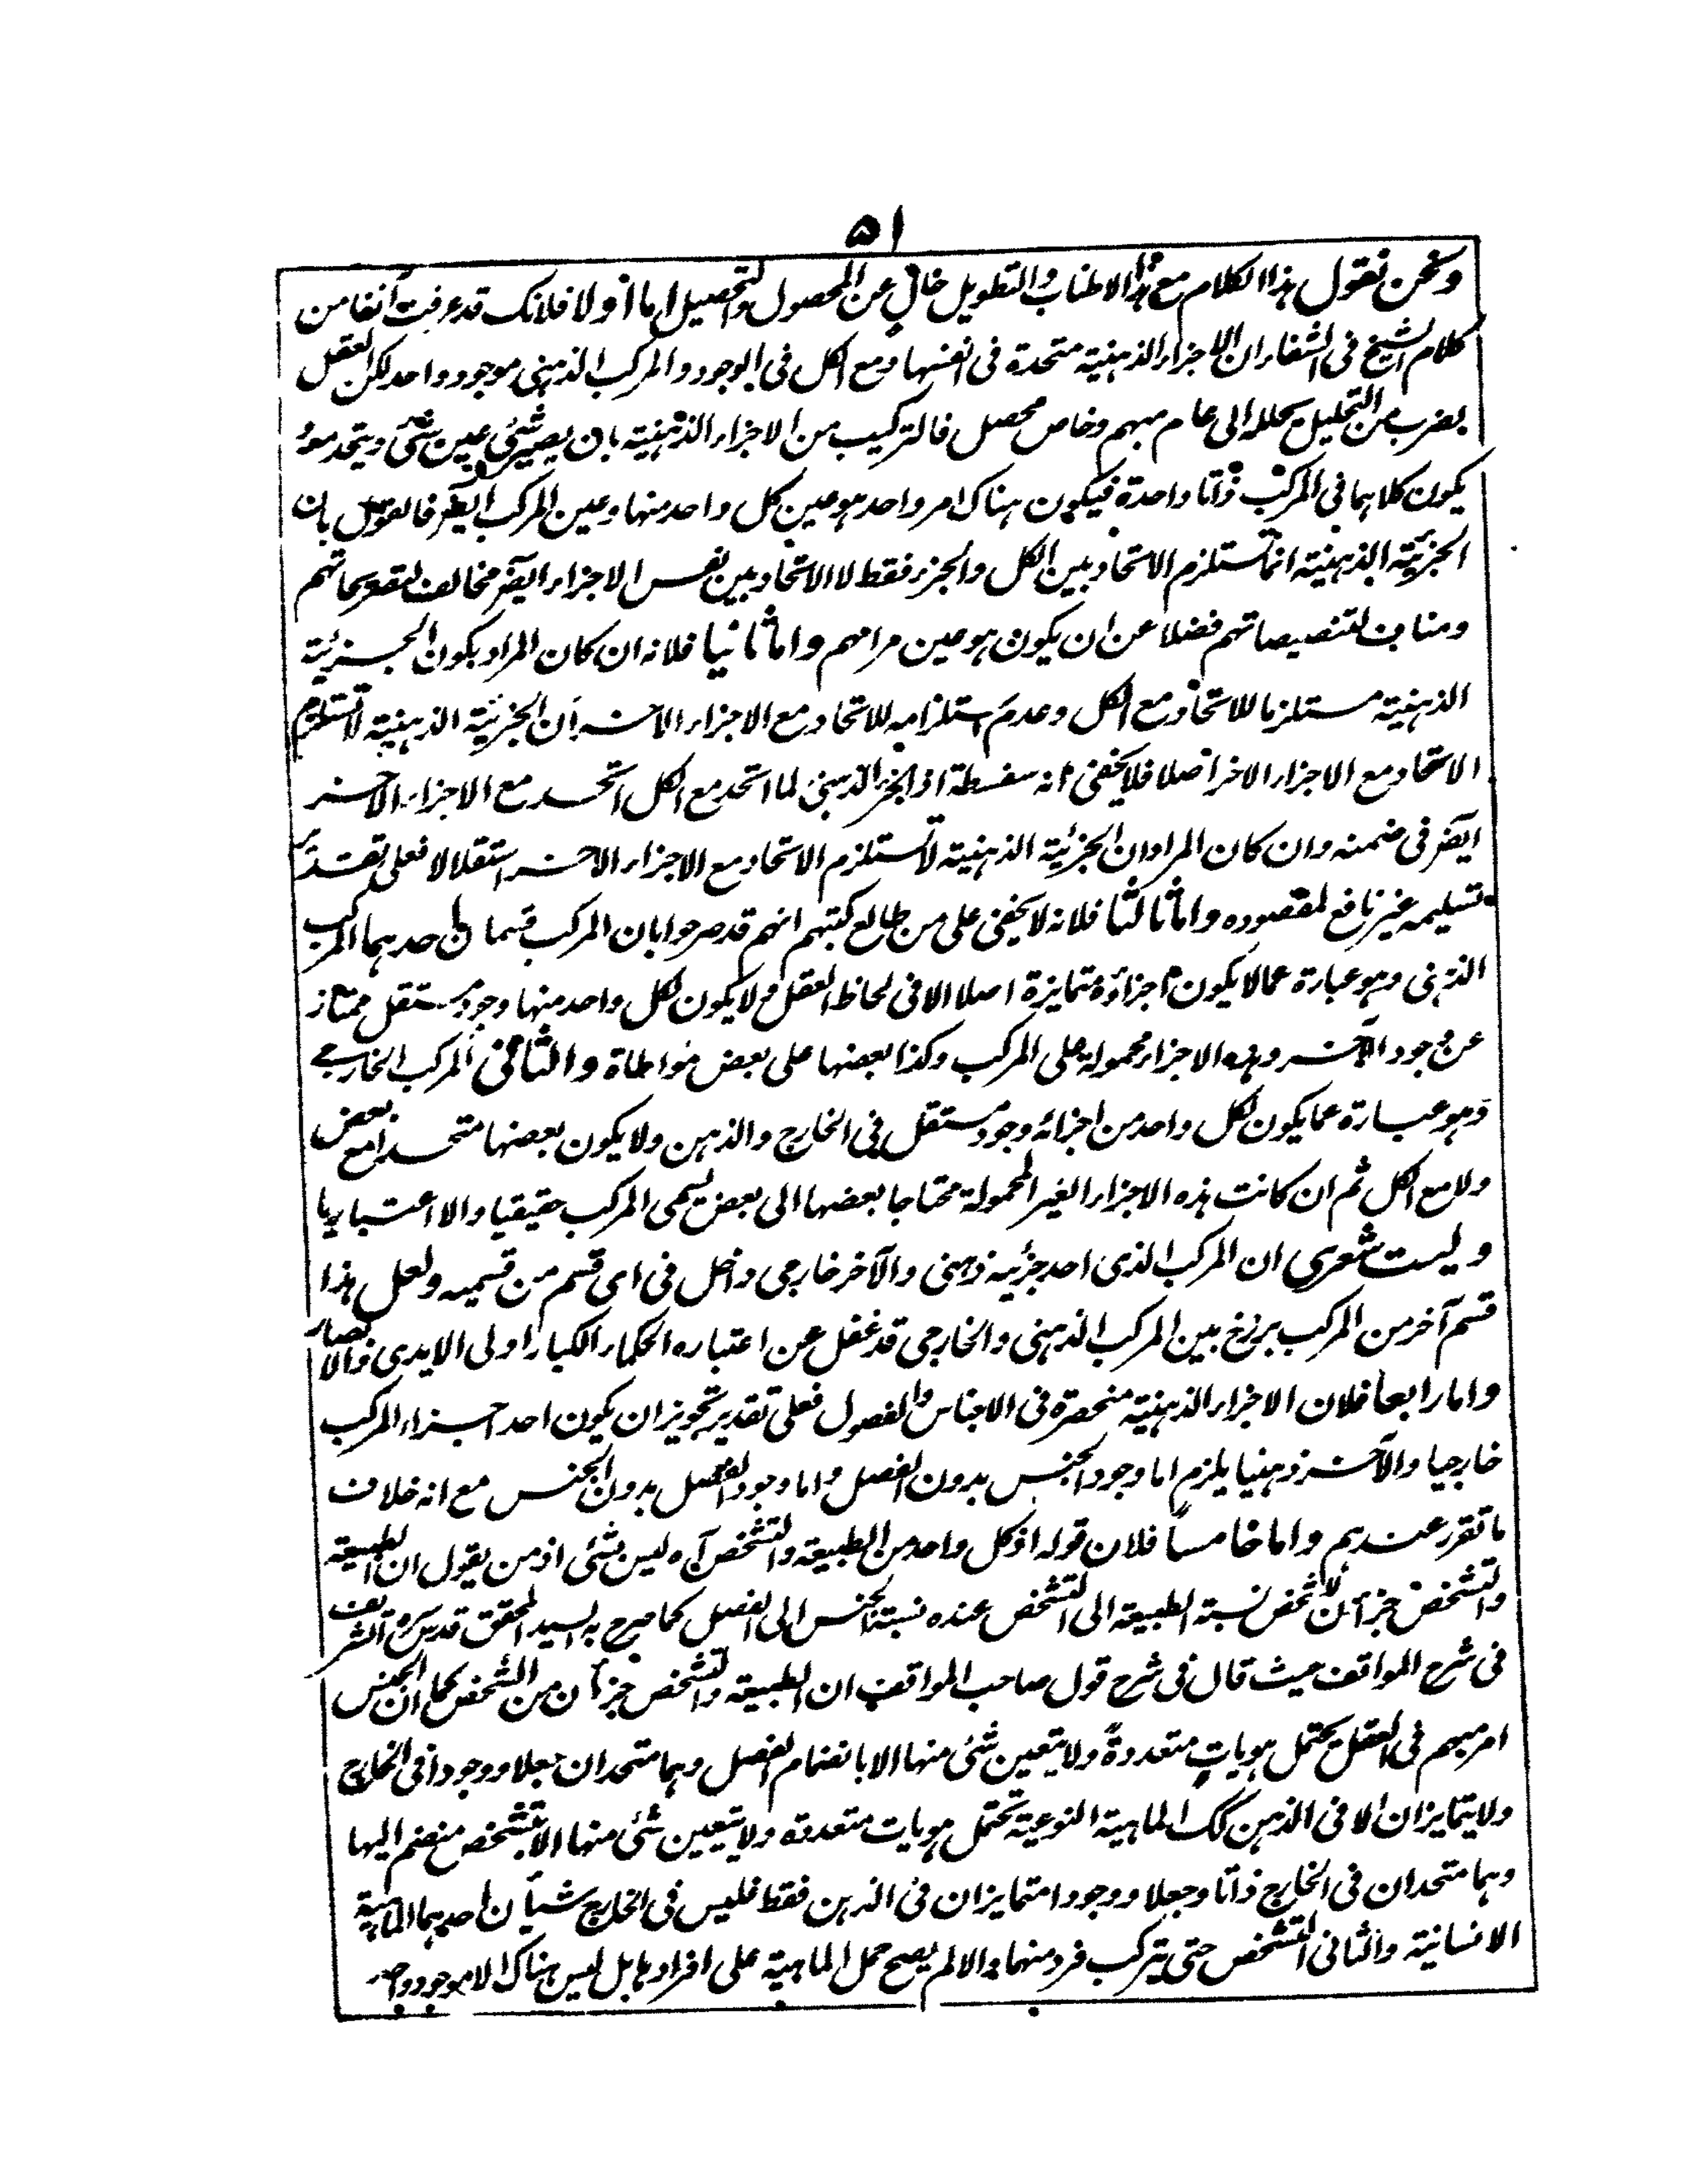 ٥١
ونحن نقول هذا الكلام مع هذا الاطناب والتطويل خال عن المحصول والتحصيل اما أولا فلانك قد عرفت آنفا من
كلام الشيخ فى الشفاء ان الاجزاء الذهنية متحدة فى انفسها ومع الكل فى الوجود والمركب الذهنى موجود واحد لكن العقل
بضرب من التحليل يحلله الى عام مبهم وخاص محصل فالتركيب من الاجزاء الذهنية بان يصير شئ عين شئ ويتحد معه
يكون كلاهما فى المركب ذاتا واحدة فيكون هناك امر واحد هو عين كل واحد منها وعين المركب ايضر فالقول بان
الجزئية الذهنية انما تستلزم الاتحاد بين الكل والجزء فقط لا الاتحاد بين نفس الاجزاء ايضر مخالف لتصريحاتهم
ومناف لتنصيصاتهم فضلا عن ان يكون هو عين مرامهم واما ثانيا فلانه ان كان المراد بكون الجزئية
الذهنية مستلزما للاتحاد مع الكل وعدم استلزامه للاتحاد مع الاجزاء الاخر ان الجزئية الذهنية لا تستلزم
الاتحاد مع الاجزاء الاخر اصلا فلا يخفى انه سفسطة اذ الجزء الذهنى لما اتحد مع الكل اتحد مع الاجزاء الاخر
ايضر فى ضمنه وان كان المراد ان الجزئية الذهنية لا تستلزم الاتحاد مع الاجزاء الاخر استقلالا فعلى تقدير
تسليمه غير نافع لمقصوده واما ثالثا فلانه لا يخفى على من طالع كتبهم انهم قد صرحوا بان المركب قسمان احدهما المركب
الذهنى وهو عبارة عما لا يكون اجزاؤه متمايزة اصلا الا فى لحاظ العقل ولا يكون لكل واحد منها وجود مستقل ممتاز
عن وجود الآخر وهذه الاجزاء محمولة على المركب وكذا بعضها على بعض مواطاة والثانى المركب الخارجى
وهو عبارة عما يكون لكل واحد من اجزائه وجود مستقل فى الخارج والذهن ولا يكون بعضها متحدا مع بعض
ولا مع الكل ثم ان كانت هذه الاجزاء الغير المحمولة محتاجا بعضها الى بعض يسمى المركب حقيقيا والا اعتباريا
وليت شعرى ان المركب الذى احد جزئيه ذهنى والآخر خارجى داخل فى اى قسم من قسميه ولعل هذا
قسم آخر من المركب برزخ بين المركب الذهنى والخارجى قد غفل عن اعتباره الحكماء الكبار اولى الايدى والابصار
واما رابعا فلان الاجزاء الذهنية منحصرة فى الاجناس والفصول فعلى تقدير تجويز ان يكون احد اجزاء المركب
خارجيا والآخر ذهنيا يلزم اما وجود الجنس بدون الفصل واما وجود الفصل بدون الجنس مع انه خلاف
ما تقرر عندهم واما خامساً فلان قوله اذ كل واحد من الطبيعة والتشخص آه ليس بشئ اذ من يقول ان الطبيعة
والتشخص جزآن للشخص نسبة الطبيعة الى التشخص عنده نسبة الجنس الى الفصل كما صرح به السيد المحقق قدس سره الشريف
فى شرح المواقف حيث قال فى شرح قول صاحب المواقف ان الطبيعة والتشخص جزآن من الشخص كما ان الجنس
امر مبهم فى العقل يحتمل هويات متعددة ولا يتعين شئ منها الا بانضمام الفصل وهما متحدان جعلا ووجودا فى الخارج
ولا يتمايزان الا فى الذهن كك الماهية النوعية تحتمل هويات متعددة ولا يتعين شئ منها الا بتشخص منضم اليها
وهما متحدان فى الخارج ذاتا وجعلا ووجودا متمايزان فى الذهن فقط فليس فى الخارج شيآن احدهما الماهية
الانسانية والثانى التشخص حتى يتركب فرد منهما والا لم يصح حمل الماهية على افرادها بل ليس هناك الا موجود واحد